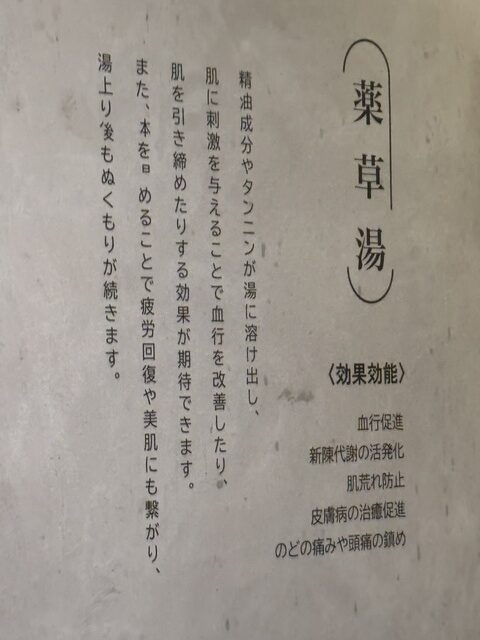 薬草湯
精油成分やタンニンが湯に溶け出し、
肌に刺激を与えることで血行を改善したり、
肌を引き締めたりする効果が期待できます。
また、本を日めることで疲労回復や美肌にも繋がり、
湯上り後もぬくもりが続きます。
〈効果効能〉
血行促進
新陳代謝の活発化
肌荒れ防止
皮膚病の治癒促進
のどの痛みや頭痛の鎮め